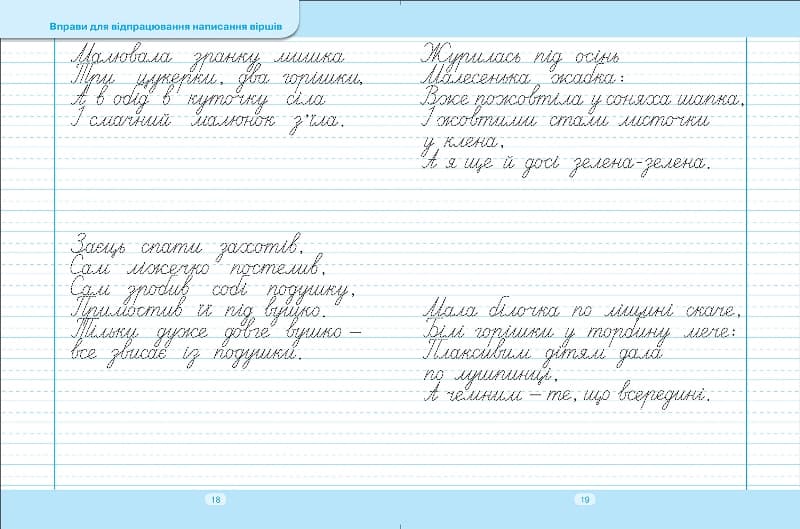 Вправи для відпрацювання написання віршів
Малювала зранку мишка
Три цукерки, два горішки,
А в обід в куточку сіла
І смачний малюнок з'їла.
Заєць спати захотів,
Сам ліжечко постелив,
Сам зробив собі подушку,
Примостив її під вушко.
Тільки дуже довге вушко –
все звисає із подушки.
18
Журилась під осінь
Малесенька жабка:
Вже пожовтіла у соняха шапка,
І жовтими стали листочки
у клена,
А я ще й досі зелена-зелена.
Мала білочка по ліщині скаче,
Білі горішки у торбину мече:
Плаксивим дітям дала
по лушпинці,
А чемним – те, що всередині.
19